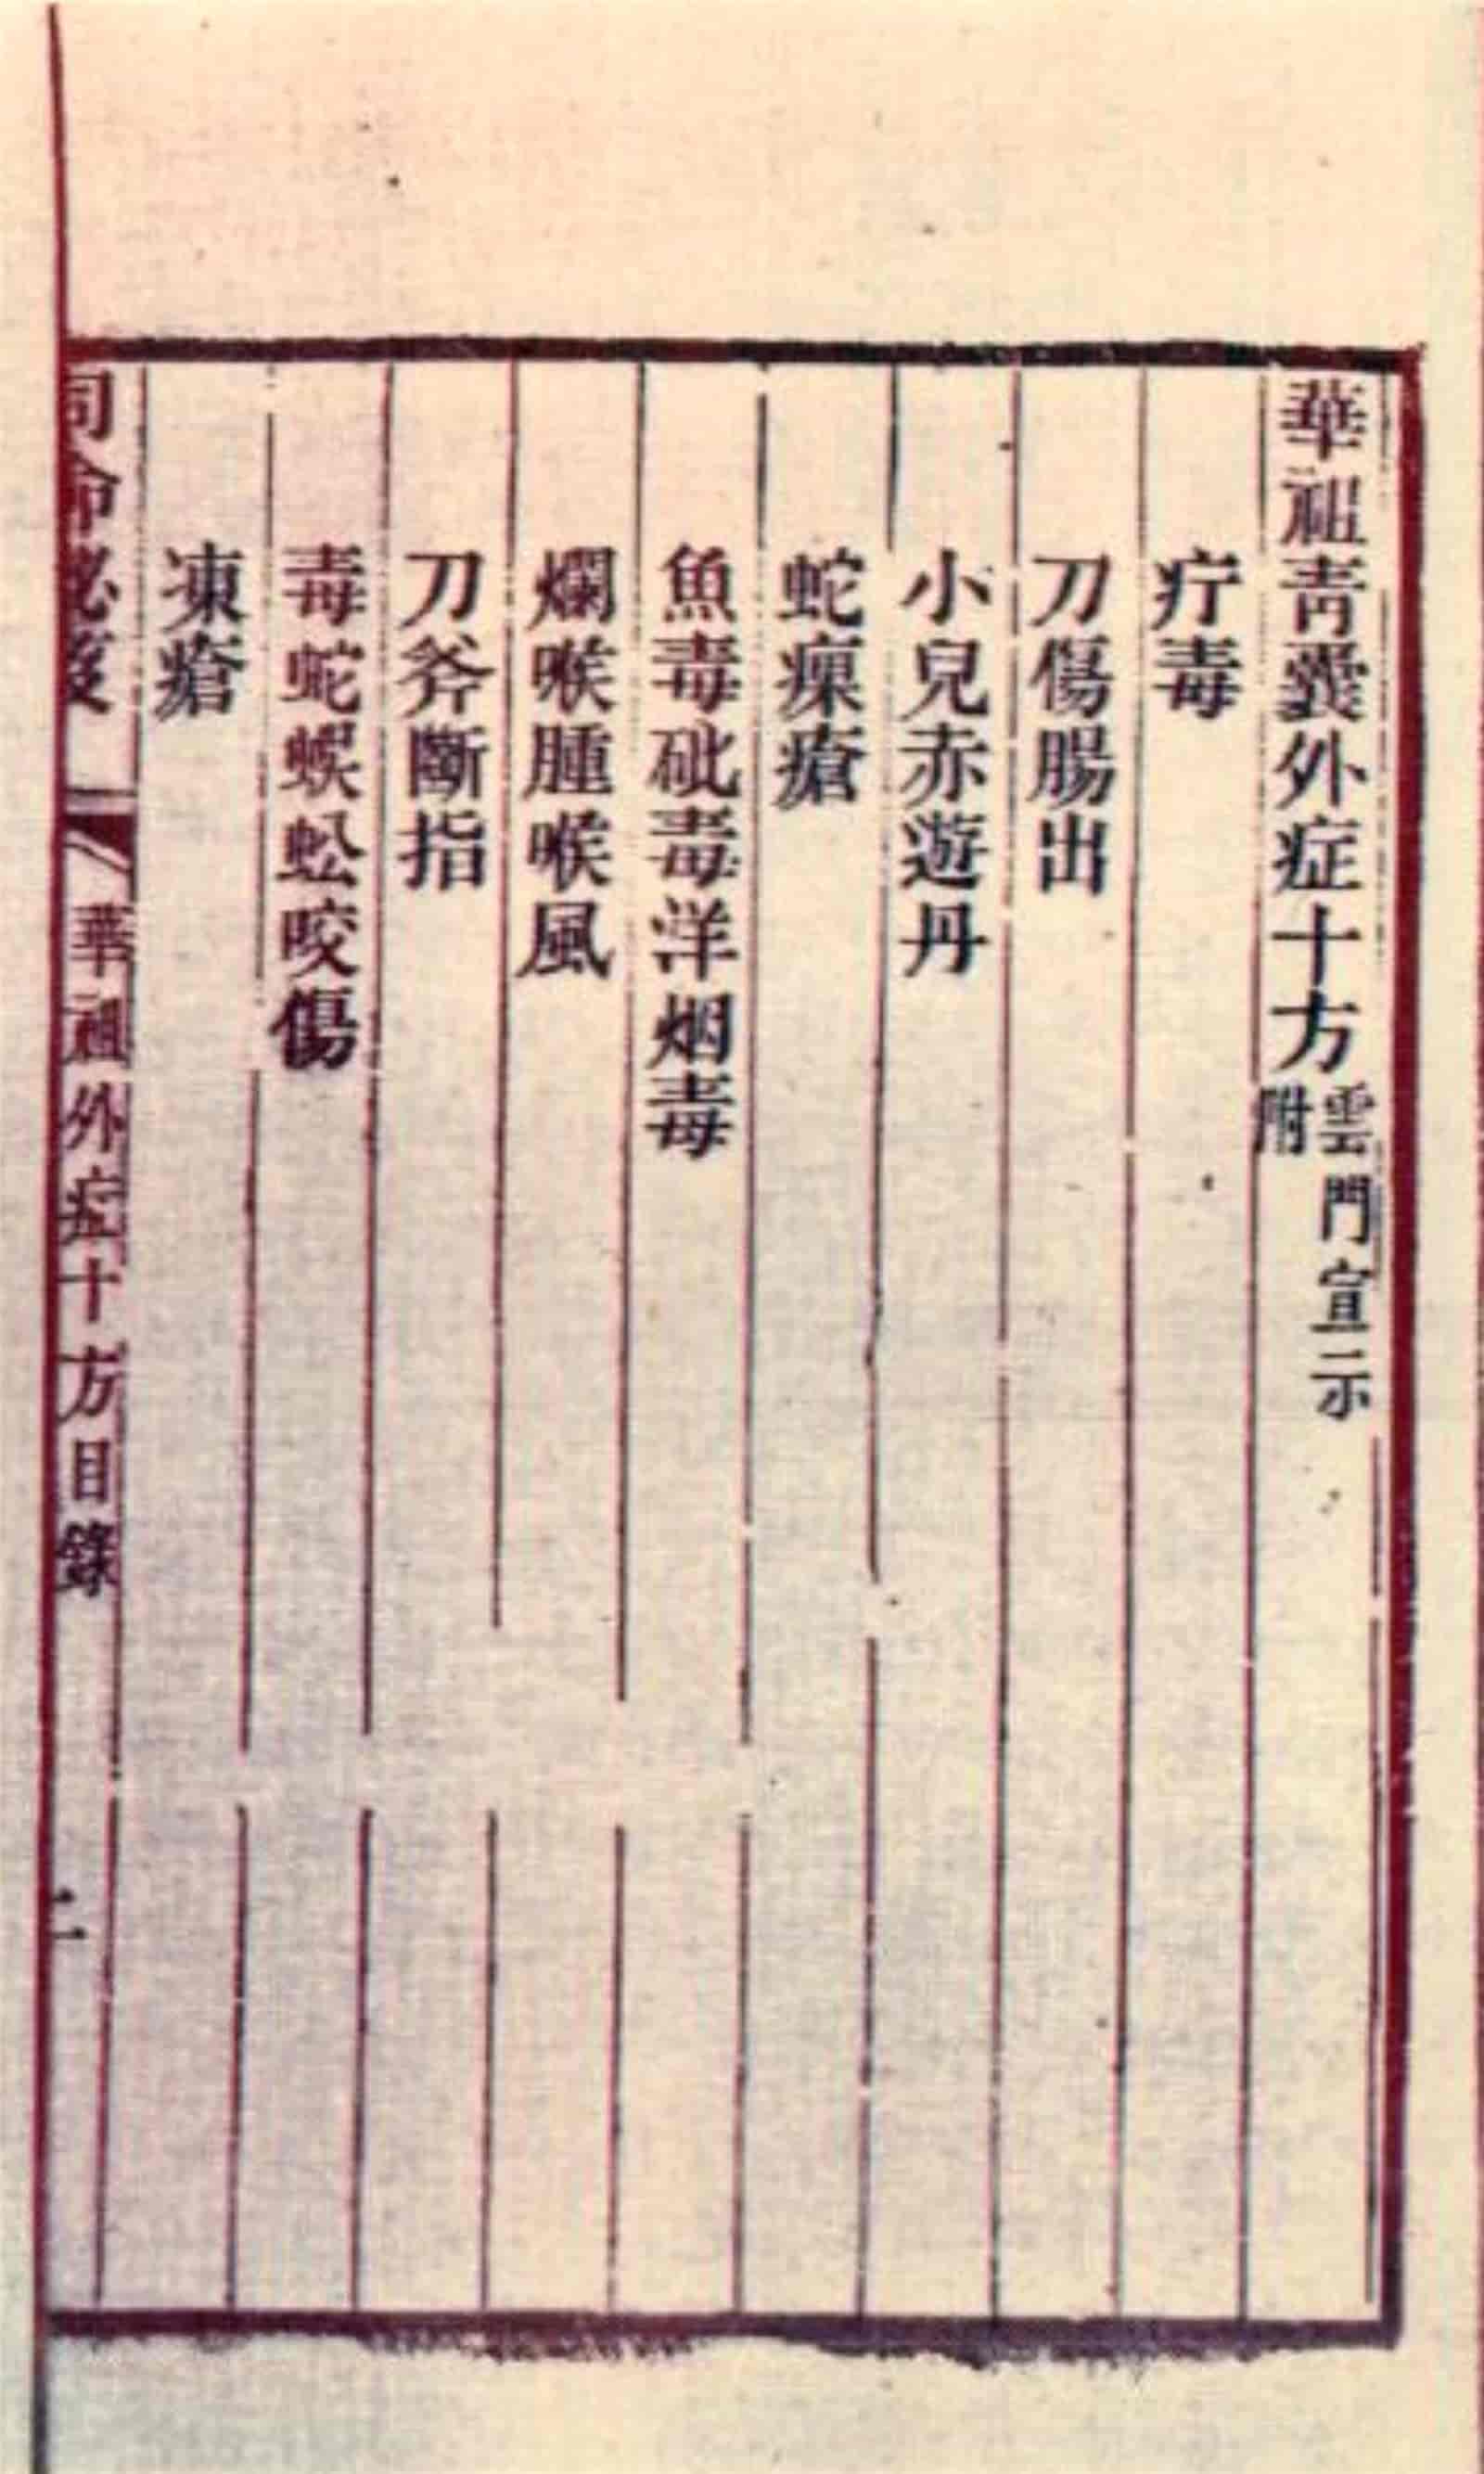 華祖青囊外症十方雲門宣示附
疔毒
刀傷腸出
小兒赤遊丹
蛇瘰瘡
魚毒砒毒洋烟毒
爛喉腫喉風
刀斧斷指
毒蛇蜈蚣咬傷
凍瘡
司命秘
華祖外症十方目錄